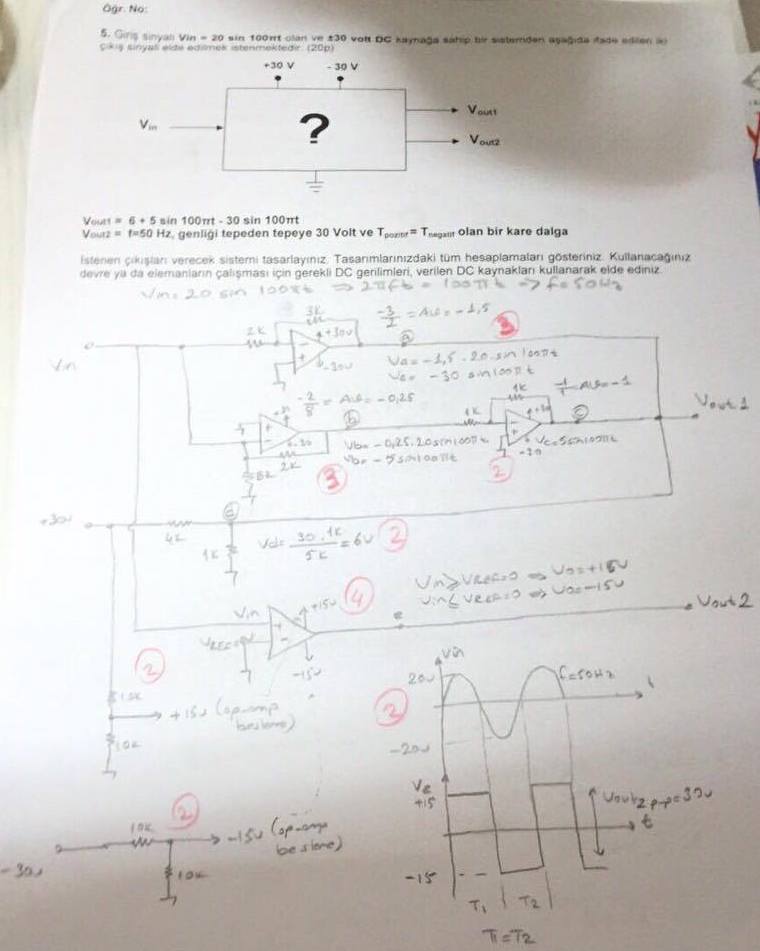 Öğr. No:
5. Giriş sinyali Vin = 20 sin 100πt olan ve ±30 volt DC kaynağa sahip bir sistemden aşağıda ifade edilen iki
çıkış sinyali elde edilmek istenmektedir. (20p)
+30 V - 30 V
Vin
?
Vout1
Vout2
Vout1 = 6 + 5 sin 100πt - 30 sin 100πt
Vout2 = f=50 Hz, genliği tepeden tepeye 30 Volt ve Tpozitif = Tnegatif olan bir kare dalga
İstenen çıkışları verecek sistemi tasarlayınız. Tasarımlarınızdaki tüm hesaplamaları gösteriniz. Kullanacağınız
devre ya da elemanların çalışması için gerekli DC gerilimleri, verilen DC kaynakları kullanarak elde ediniz.
Vin = 20 sin 100πt ⇒ 2πft = 100πt ⇒ f=50Hz
3K
-3/2 = AVF = -1,5
3
2K
+30V
a
Vin
-30V
Va = -1,5 . 20 . sin 100πt
Va = -30 sin 100πt
-2/8 = AVF = -0,25
1K
-1/1 = AVF = -1
b
1K
+30
c
Vout 1
-30
Vb = -0,25.20 sin 100πt
Vc = 5 sin 100πt
8K
2K
Vb = -5 sin 100πt
3
2
-30
+30V
d
4K
1K
Vd = 30 . 1K / 5K = 6V
2
Vin ≥ VREF=0 ⇒ Vo=+15V
Vin ≤ VREF=0 ⇒ Vo=-15V
4
Vin
+15V
e
Vout 2
VREF=0V
-15V
2
10K
+15V (op-amp
besleme)
10K
2
Vin
20V
f=50Hz
t
-20V
Ve
+15
Vout2 p-p=30V
t
-15
T1 T2
T1=T2
2
10K
-15V (op-amp
besleme)
-30V
10K